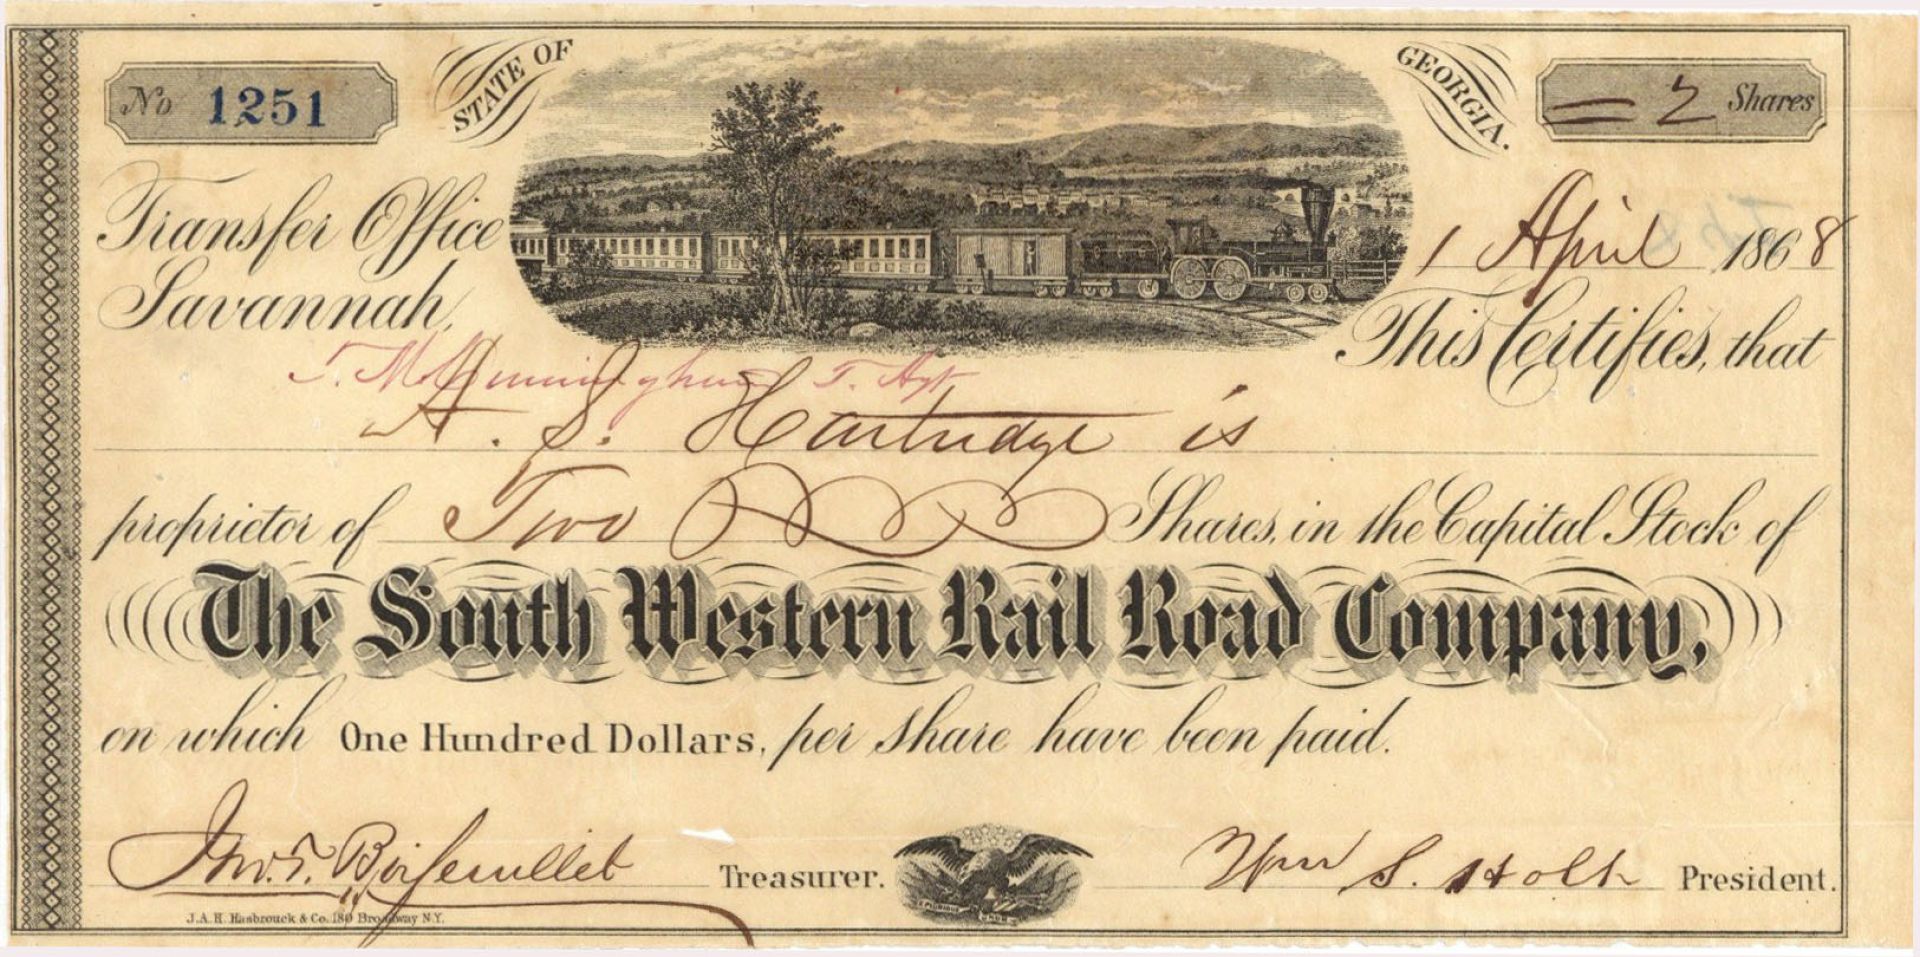 No 1251
STATE OF GEORGIA.
= 2 Shares
Transfer Office
Savannah,
1 April 1868
This Certifies, that
T. M. Cunningham T. Agt
A. S. Hartridge is
proprietor of Two Shares, in the Capital Stock of
The South Western Rail Road Company,
on which One Hundred Dollars, per share have been paid.
Jno. T. Boifeuillet Treasurer.
E PLURIBUS UNUM
Wm S. Holt President.
J.A.H. Hasbrouck & Co. 180 Broadway N.Y.